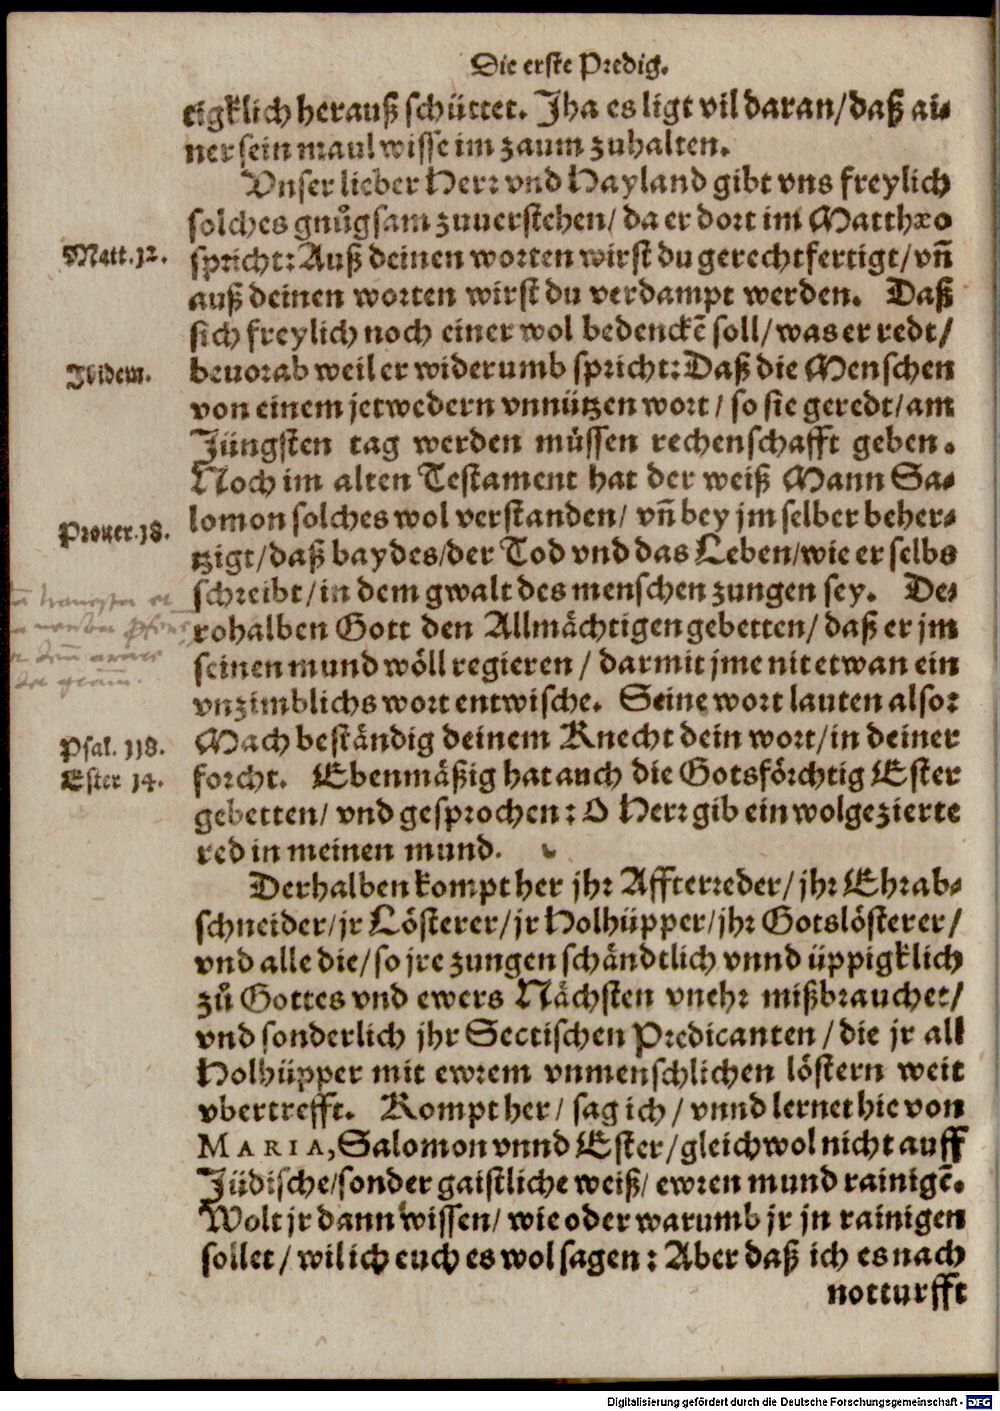 Die erste Predig.
eigklich herauß schüttet. Jha es ligt vil daran/ daß ai-
ner sein maul wisse im zaum zuhalten.
Vnser lieber Herr vnd Hayland gibt vns freylich
solches gnůgsam zuuerstehen/ da er dort im Matthæo
Matt. 12.
spricht: Auß deinen worten wirst du gerechtfertigt/ vñ
auß deinen worten wirst du verdampt werden. Daß
sich freylich noch einer wol bedenckẽ soll/ was er redt/
Ibidem.
beuorab weil er widerumb spricht: Daß die Menschen
von einem jetwedern vnnützen wort/ so sie geredt/ am
Jüngsten tag werden müssen rechenschafft geben.
Noch im alten Testament hat der weiß Mann Sa-
Prouer. 18.
lomon solches wol verstanden/ vñ bey jm selber beher-
tzigt/ daß baydes/ der Tod vnd das Leben/ wie er selbs
schreibt/ in dem gwalt des menschen zungen sey. De-
rohalben Gott den Allmächtigen gebetten/ daß er jm
seinen mund wöll regieren/ darmit jme nit etwan ein
vnzimblichs wort entwische. Seine wort lauten also:
Psal. 118.
Mach beständig deinem Knecht dein wort/ in deiner
Ester 14.
forcht. Ebenmäßig hat auch die Gotsförchtig Ester
gebetten/ vnd gesprochen: O Herr gib ein wolgezierte
red in meinen mund.
Derhalben kompt her jhr Affterreder/ jhr Ehrab-
schneider/ jr Lösterer/ jr Holhüpper/ jhr Gotslösterer/
vnd alle die/ so jre zungen schändtlich vnnd üppigklich
zů Gottes vnd ewers Nächsten vnehr mißbrauchet/
vnd sonderlich jhr Sectischen Predicanten/ die jr all
Holhüpper mit ewrem vnmenschlichen löstern weit
vbertrefft. Kompt her/ sag ich/ vnnd lernet hie von
MARIA, Salomon vnnd Ester/ gleichwol nicht auff
Jüdische/ sonder gaistliche weiß/ ewren mund rainigẽ.
Wolt jr dann wissen/ wie oder warumb jr jn rainigen
sollet/ wil ich euch es wol sagen: Aber daß ich es nach
notturfft
Digitalisierung gefördert durch die Deutsche Forschungsgemeinschaft - DFG